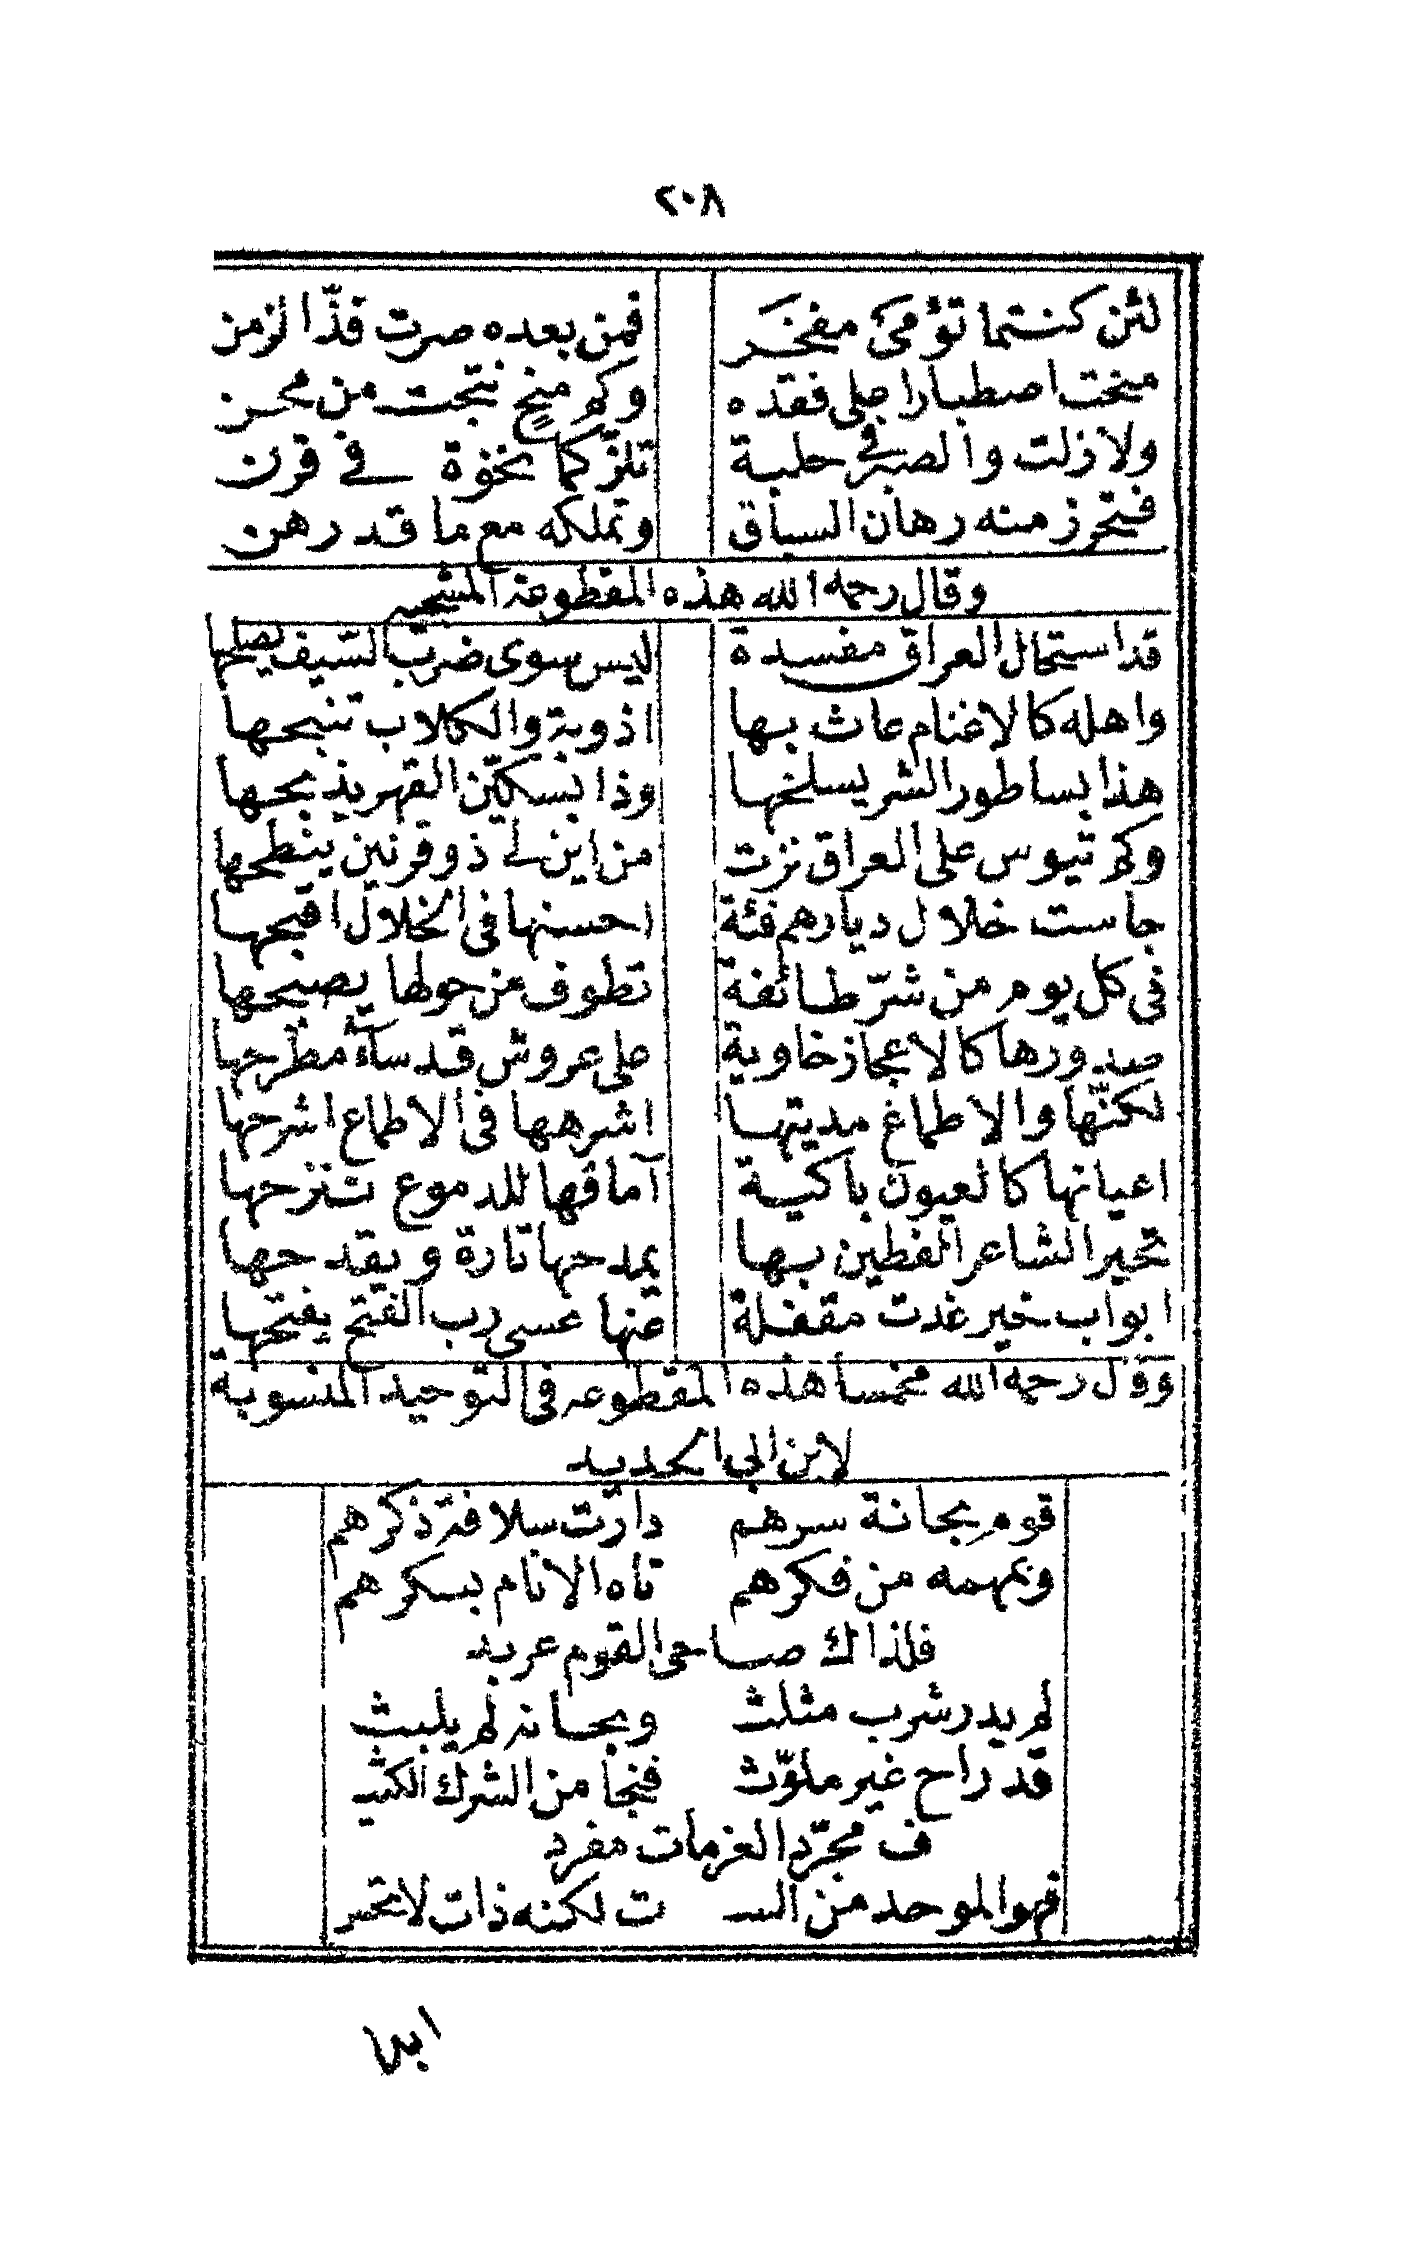 ٢٠٨
لئن كنتما تؤمىْ مفخر فمن بعده صرت فذّ الزمن
منحت اصطبارا على فقده وكم منح نتجت من محن
ولا زلت والصبر في حلبة تلزّكما بنخوة في قرن
فتحرز منه رهان السباق وتملكه مع ما قد رهن
وقال رحمه الله هذه المقطوعة
قد استحال العراق مفسدة ليس سوى ضرب السّيف يصلحها
واهله كالاغنام عاث بها اذوبة والكلاب تنبحها
هذا بساطور الشر يسلخها وذا بسكّين القهر يذبحها
وكم تيوس على العراق نزت من اين لي ذو قرنين ينطحها
جاست خلال ديارهم فئة احسنها في الخلال اقبحها
في كل يوم من شرّ طائفة تطوف من حولها يصبحها
صدورها كالاعجاز خاوية على عروش قد سآء مطرحها
لكنّها والاطماغ مديتها اشرهها في الاطماع اشرحها
اعيانها كالعيون باكية آماقها للدموع تنزحها
تحير الشاعر الفطين بها يمدحها تارة ويقدحها
ابواب خير غدت مقفلة عنها عسى رب الفتح يفتحها
وقال رحمه الله مخمسا هذه المقطوعه في التوحيد المنسوبة
لابن ابي الحديد
قوم بحانة سرهم دارت سلافة ذكرهم
وبمهمه من فكرهم تاه الانام بسكرهم
فلذاك صاحى القوم عربد
لم يدر شرب مثلث وبحانة لم يلبث
قد راح غير ملوّث فنجا من الشرك الكثيـ
ـف مجرّد العزمات مفرد
فهو الموحد من السـ ت لكنه ذات لا تحير
ابدا